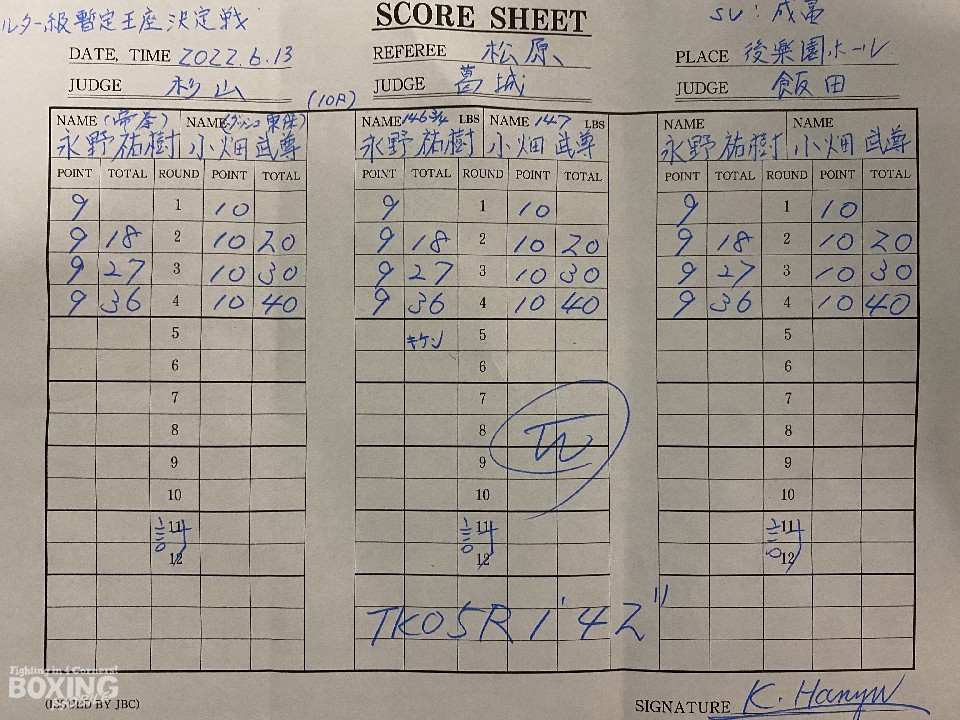 ルター級暫定王座決定戦 SCORE SHEET SV:成富
DATE, TIME 2022.6.13 REFEREE 松原 PLACE 後楽園ホール
JUDGE 杉山 JUDGE 葛城 JUDGE 飯田
(10R)
NAME (帝拳) NAME 東保 NAME 146 3/4 LBS NAME 147 LBS NAME NAME
永野祐樹 小畑武尊 永野祐樹 小畑武尊 永野祐樹 小畑武尊
POINT TOTAL ROUND POINT TOTAL POINT TOTAL ROUND POINT TOTAL POINT TOTAL ROUND POINT TOTAL
9 1 10 9 1 10 9 1 10
9 18 2 10 20 9 18 2 10 20 9 18 2 10 20
9 27 3 10 30 9 27 3 10 30 9 27 3 10 30
9 36 4 10 40 9 36 4 10 40 9 36 4 10 40
5 キケン 5 5
6 6 6
7 7 7
8 8 W 8
9 9 9
10 10 10
計 11 計 11 計 11
12 12 12
TKO5R 1'42"
Fighting in 4 Corners!
BOXING
(ISSUED BY JBC) SIGNATURE K. Hanyu